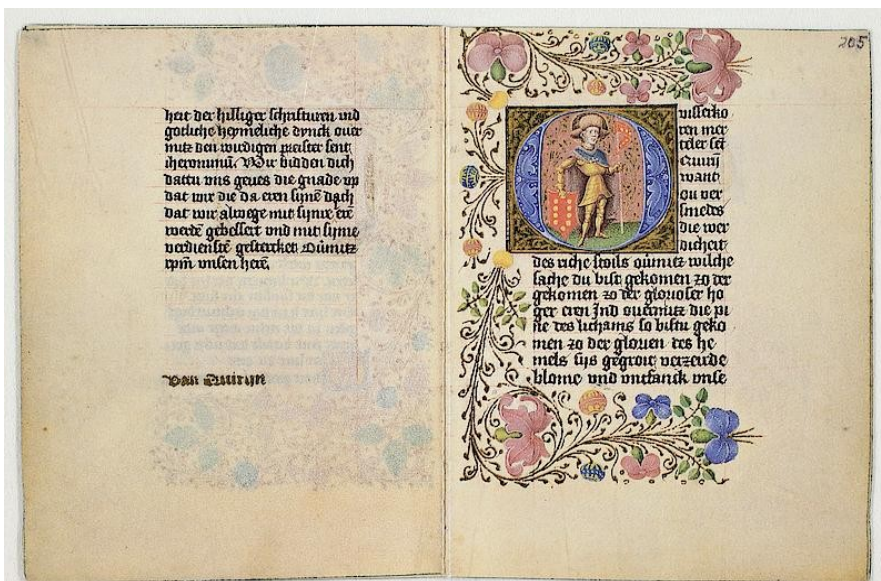 heit der hilliger schrifturen vnd
gotliche heymeliche dynck ouer
mitz den wirdigen preister sent
iheronimū. Wir bidden dich
dattu vns geues die gnade vp
dat wir die da eren synē dach
dat wir alwege mit synre erē
werdē gebessert vnd mit syme
verdienstē gestercket Oūmitz
xpm̄ vnsen herē.
van Quiryn
205
O
visserko
ren mer
teler sēt
Quirī
want
du ver
smedes
die wer
dicheit
des riche stoils oūmitz wilche
sache du bist gekomen zo der
gekomen zo der glorioser ho
ger eren Ind ouermitz die pi
ne des lichams so bistu geko
men zo der glorien des he
mels sijs gegroit verzeirde
blome vnd vntfanck vnse